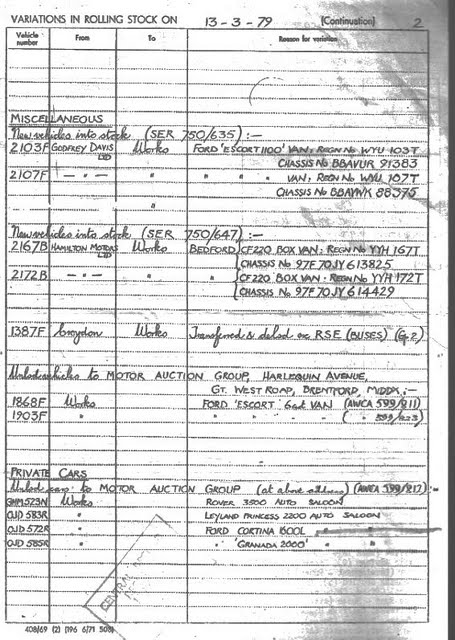 VARIATIONS IN ROLLING STOCK ON 13-3-79 (Continuation) 2
Vehicle number From To Reason for variation
MISCELLANEOUS
New vehicles into stock (SER 750/635) :-
2103F GODFREY DAVIS LTD Works FORD 'ESCORT 1100' VAN: REGN No WYU 103T
CHASSIS No BBAVUR 91383
2107F — " — " " " " VAN: REGN No WYU 107T
" CHASSIS No 88375
New vehicles into stock (SER 750/647) :-
2167B HAMILTON MOTORS LTD Works BEDFORD CF220 BOX VAN: REGN No YYH 167T
CHASSIS No 97F70JY613825
2172B — " — " " CF220 BOX VAN: REGN No YYH 172T
" CHASSIS No 97F70JY614429
1387F Croydon Works Transferred & RSE (BUSES) (Gp.2)
vehicles to MOTOR AUCTION GROUP, HARLEQUIN AVENUE,
GT. WEST ROAD, BRENTFORD, MIDDX :-
1868F Works FORD 'ESCORT' 6cwt VAN (AWCA 599/211)
1903F " " " " ( " 599/223)
PRIVATE CARS
cars to MOTOR AUCTION GROUP (at above address) (AWCA 599/217) :-
GHM523N Works ROVER 3500 AUTO SALOON
OJD 583R " LEYLAND PRINCESS 2200 AUTO SALOON
OJD 572R " FORD CORTINA 1600L " "
OJD 585R " " 'GRANADA 2000' " "
CENTRAL
408/69 (2) (196 6/71 508)